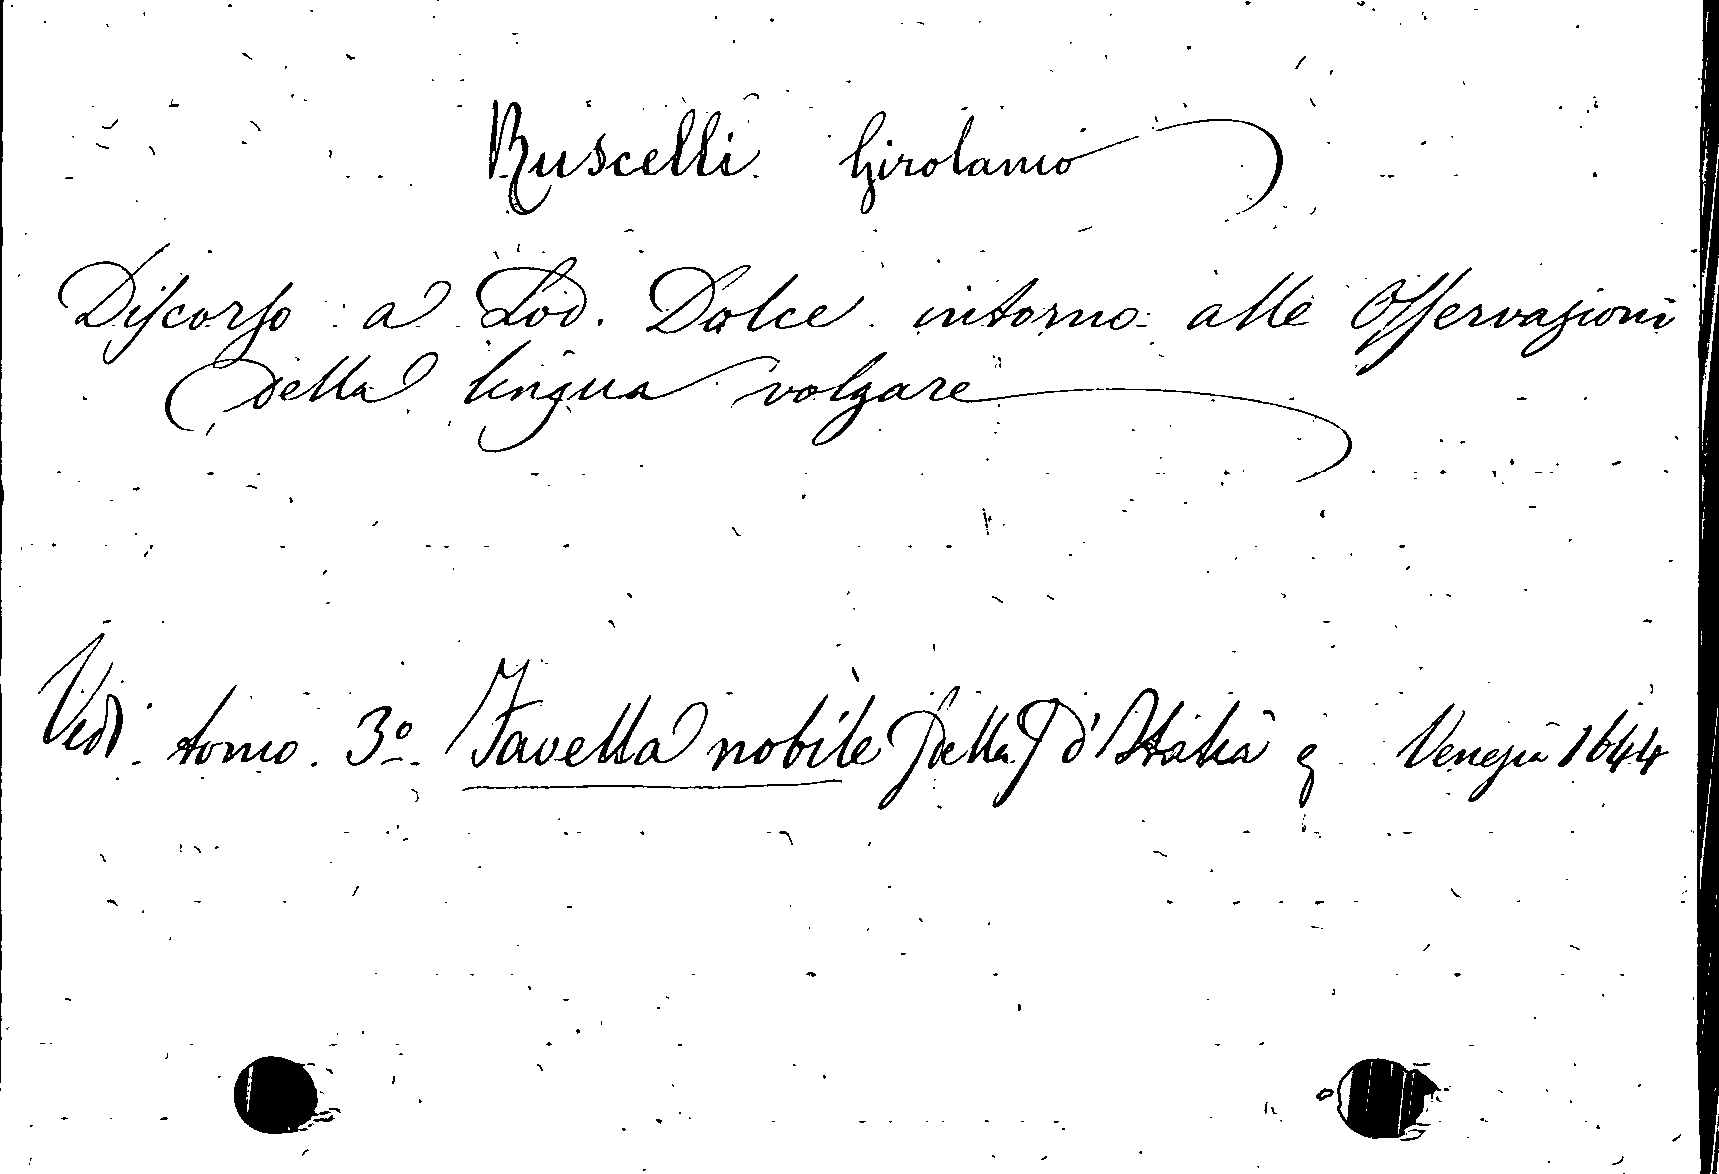 Ruscelli Girolamo
Discorso a Lod. Dolce intorno alle Osservazioni
della lingua volgare
Vedi tomo 3º Favella nobile della d'Italia Venezia 1644